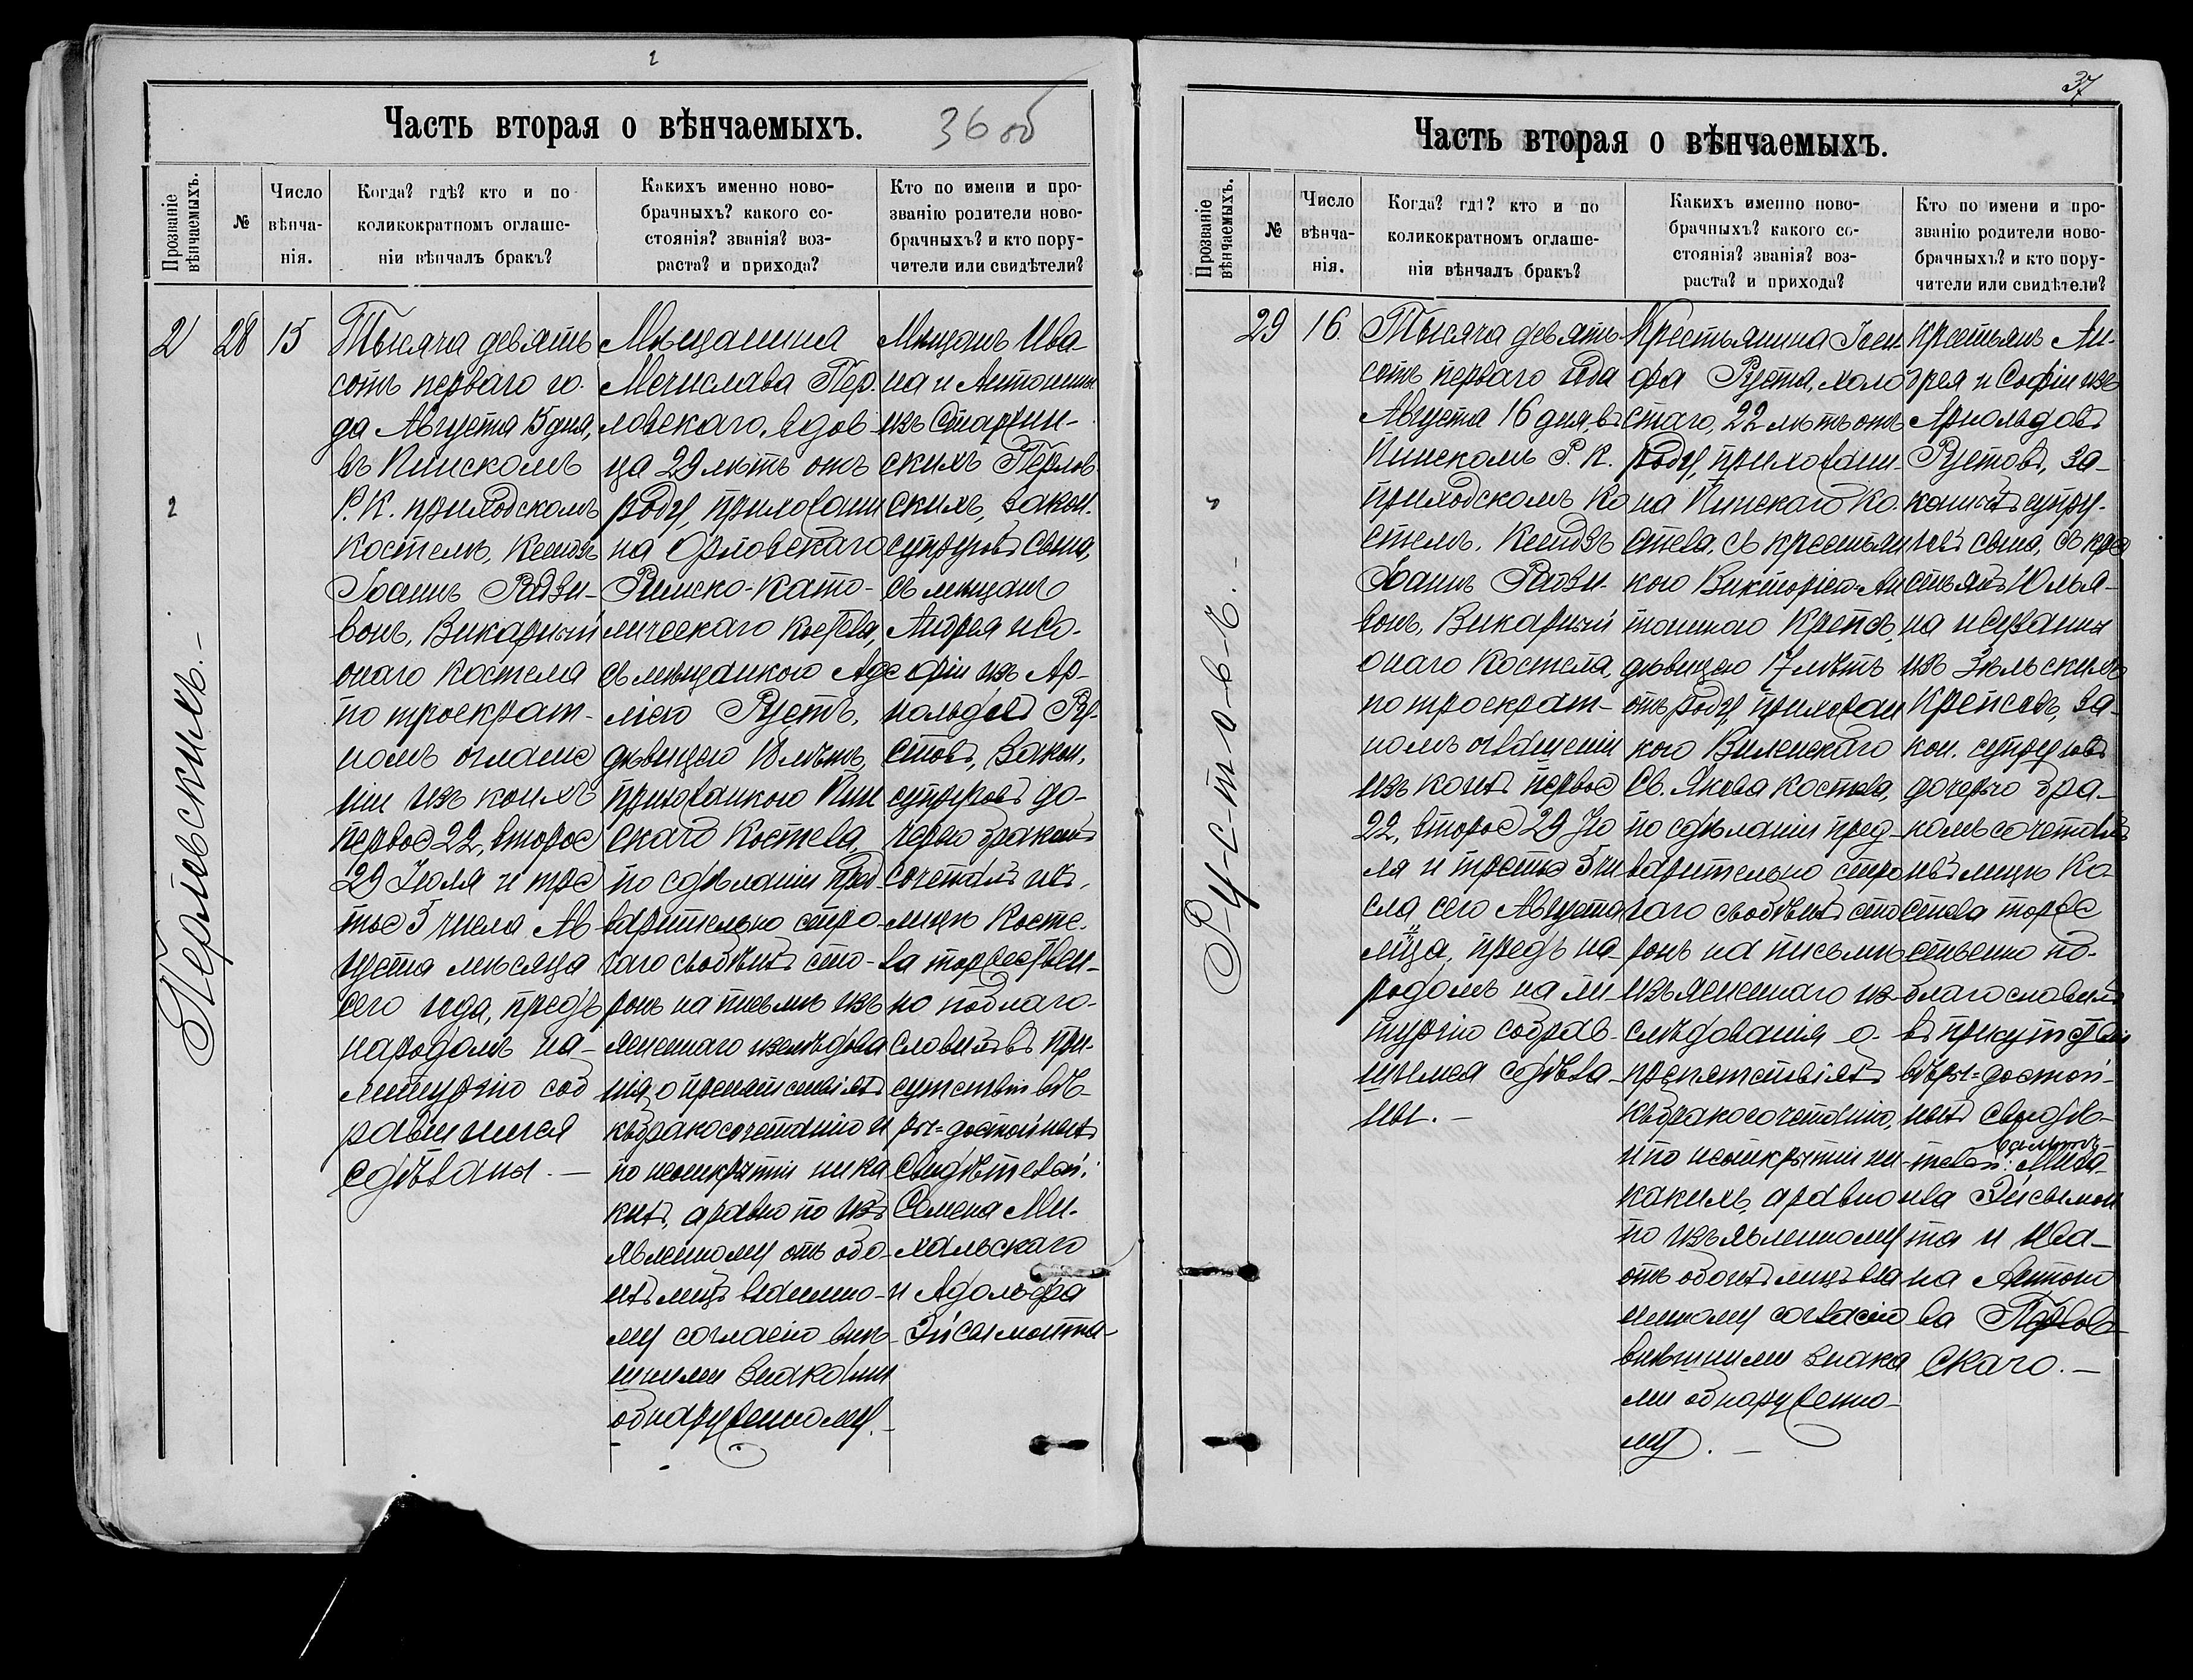 2
Часть вторая о вѣнчаемыхъ.
36 об
Прозваніе
вѣнчаемыхъ.
№
Число
вѣнча-
нія.
Когда? гдѣ? кто и по
коликократномъ оглаше-
ніи вѣнчалъ бракъ?
Каких­ъ именно ново-
брачныхъ? какого со-
стоянія? званія? воз-
раста? и прихода?
Кто по имени и про-
званію родители ново-
брачныхъ? и кто пору-
чители или свидѣтели?
2
2
28
15
Тысяча девять
сотъ перваго го-
да Августа 15 дня,
въ Пинскомъ
Р. К. приходскомъ
Костелѣ, Ксендзъ
Іоаннъ Радзи-
вонъ, Викарный
онаго Костела
по троекрат-
номъ оглаше
ніи изъ коихъ
первое 22, второе
29 Іюля и тре
тье 5 числа Ав
густа мѣсяца
сего года, предъ
народомъ на
литургію соб
равшимся
сдѣланы. —
Мѣщанина
Мечислава Пер-
ловскаго, вдов
ца 29 лѣтъ отъ
роду, прихожани
на Орловскаго
Римско-Като-
лическаго Костела,
съ мѣщанкою Аде
лію Рустъ,
дѣвицею 18 лѣтъ,
прихожанкою Пин
скаго Костела,
по сдѣланіи пред
варительно стро-
гаго свободныхъ сто-
ронъ на письмѣ изъ
ясненнаго изслѣдова
нія о препятствіяхъ
къ бракосочетанію и
по неоткрытіи ника
кихъ, а равно по изъ
явленному отъ обо-
ихъ лицъ взаимно-
му согласію внѣ-
шними знаками
обнаруженному. —
Мѣщанъ Ива
на и Антонины
изъ Старжин-
скихъ Перлов
скихъ, закон.
супруговъ сына,
съ мѣщанъ
Андрея и Со-
фіи изъ Ар-
нольдовъ Ру-
стовъ, закон.
супруговъ до-
черью бракомъ
сочеталъ ихъ,
лицѣ Косте-
ла торжествен-
но поблаго-
словилъ въ при-
сутствіи вѣ-
ры-достойныхъ
Свидѣтелей:
Семена Ми-
хальскаго
и Адольфа
Эйсымонта
Перловскихъ. —
37
Часть вторая о вѣнчаемыхъ.
Прозваніе
вѣнчаемыхъ.
№
Число
вѣнча-
нія.
Когда? гдѣ? кто и по
коликократномъ оглаше-
ніи вѣнчалъ бракъ?
Какихъ именно ново-
брачныхъ? какого со-
стоянія? званія? воз-
раста? и прихода?
Кто по имени и про-
званію родители ново-
брачныхъ? и кто пору-
чители или свидѣтели?
29
16.
Тысяча девять
сотъ перваго года
Августа 16 дня, въ
Пинскомъ Р. К.
приходскомъ Ко
стелѣ, Ксендзъ
Іоаннъ Радзи-
вонъ, Викарный
онаго Костела,
по троекрат-
номъ оглашеніи
изъ коихъ первое
22, второе 29 Ію
ля и третье 5 чи
сла сего Августа
м-ца, предъ на-
родомъ на ли-
тургію собрав-
шимся сдѣла-
ны. —
Крестьянина Іоси
фа Руста, холо
стаго, 22 лѣтъ отъ
роду, прихожани-
на Пинскаго Ко-
стела, съ крестьян
кою Викторіею-Ан
тониною Крепсъ,
дѣвицею 17 лѣтъ
отъ роду, прихожан
кою Виленскаго
Св. Якова Костела,
по сдѣланіи пред-
варительно стро
гаго свободныхъ сто
ронъ на письмѣ
изъясненнаго из-
слѣдованія о
препятствіяхъ
къ бракосочетанію,
и по неоткрытіи ни-
какихъ, а равно
по изъявленному
отъ обоихъ лицъ вза
имному согласію
внѣшними знака
ми обнаруженно-
му. —
Крестьянъ Ан-
дрея и Софіи изъ
Арнольдовъ
Рустовъ, за-
конныхъ супру-
говъ сына, съ кре
стьянъ Юлья-
на и Сузанны
изъ
Крепсовъ, за-
кон. супруговъ
дочерью бра-
комъ сочеталъ
ихъ лицѣ Ко-
стела торже
ственно по-
благословилъ
въ присутствіи
вѣры-достой-
ныхъ Свидѣ-
телей:
Эйсымон
та и Ива-
на Антоно
ва Перлов-
скаго. —
Р-у-с-т-о-в-ъ. —